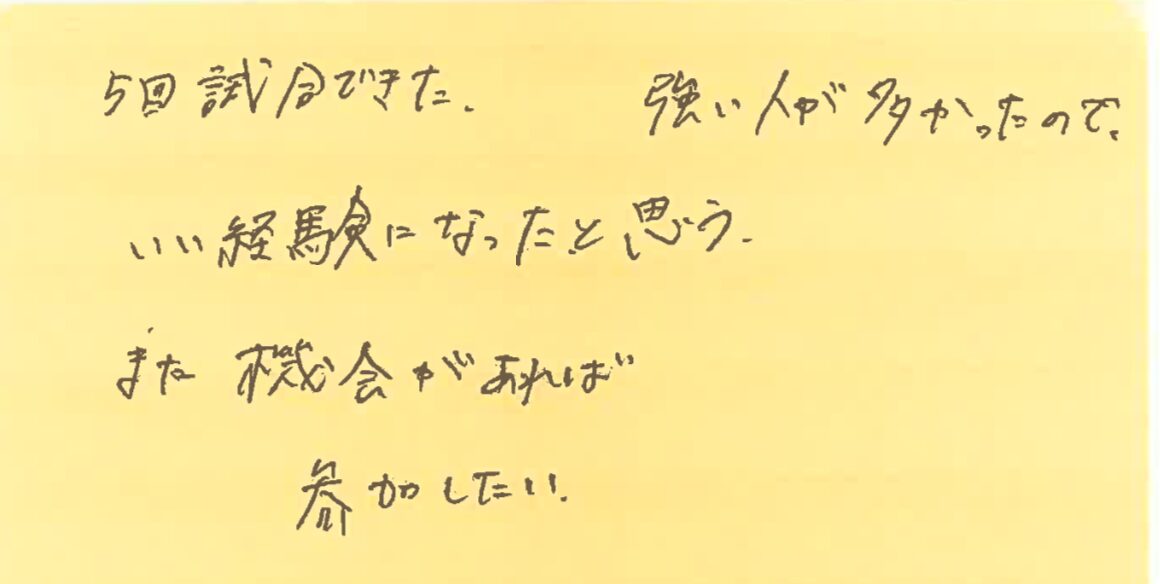 5回試合できた. 強い人が多かったので、
いい経験になったと思う.
また機会があれば
参加したい.